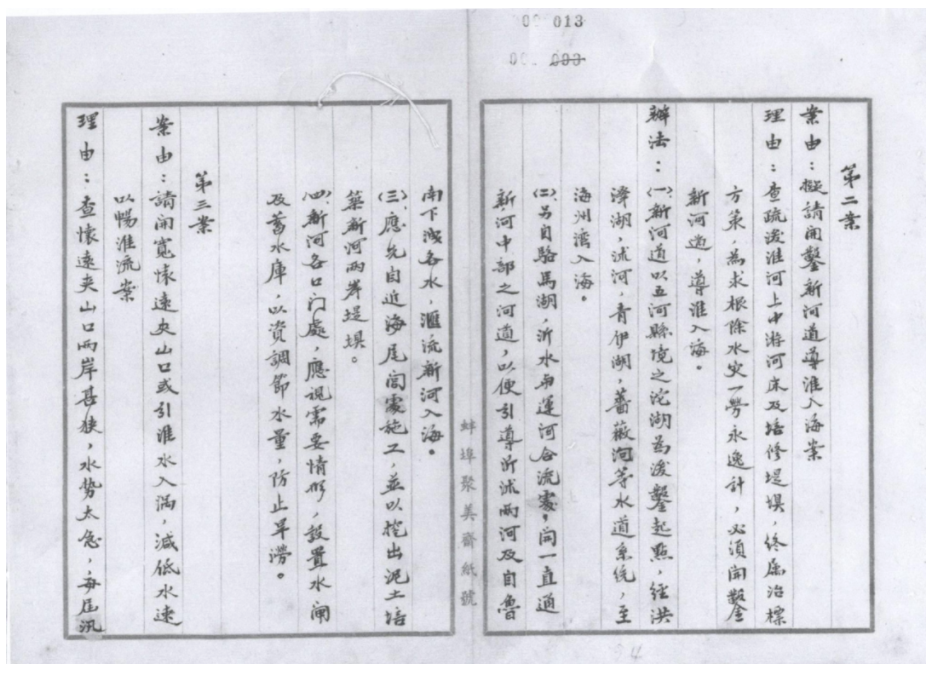 00 013
00 000
第二案
案由：擬請開鑿新河道導淮入海案
理由：查疏濬淮河上中游河床及培修堤堘，終屬治標
方策，為求根除水灾一勞永逸計，必須開鑿
新河道，導淮入海。
辦法：㈠新河道以五河縣境之沱湖為濬鑿起點，經洪
澤湖，沭河，青伊湖，薔薇河等水道系統，至
海州灣入海。
㈡另自駱馬湖，沂水南運河合流處，開一直通
新河中部之河道，以便引導沂沭兩河及自魯
南下洩各水，滙流新河入海。
㈢應先自近海尾閭處施工，並以挖出泥土培
築新河兩岸堤堘。
㈣新河各口门處，應視需要情形，設置水閘
及蓄水庫，以資調節水量，防止旱澇。
第三案
案由：請開寬懷遠夾山口或引淮水入渦，減低水速
以暢淮流案
理由：查懷遠夾山口兩岸甚狹，水勢太急，每屆汛
蚌埠聚美齋紙號
24